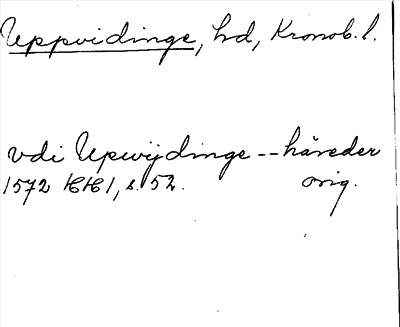 Uppvidinge, hd, Kronob. l.
vdi Upwijdinge -- häreder
1572 HH 1, s. 52. orig.